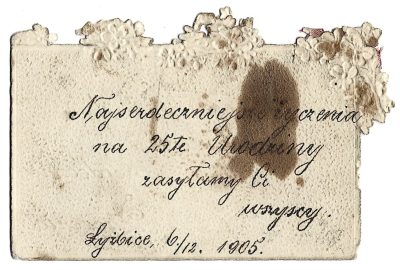 Najserdeczniejsze życzenia
na 25te Urodziny
zasyłamy Ci
wszyscy.
Łyżbice, 6/12. 1905.